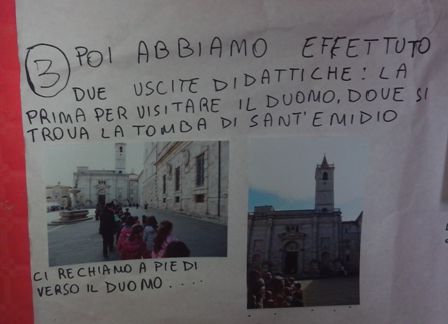 3 POI ABBIAMO EFFETTUTO
DUE USCITE DIDATTICHE: LA
PRIMA PER VISITARE IL DUOMO, DOVE SI
TROVA LA TOMBA DI SANT'EMIDIO
CI RECHIAMO A PIEDI
VERSO IL DUOMO....